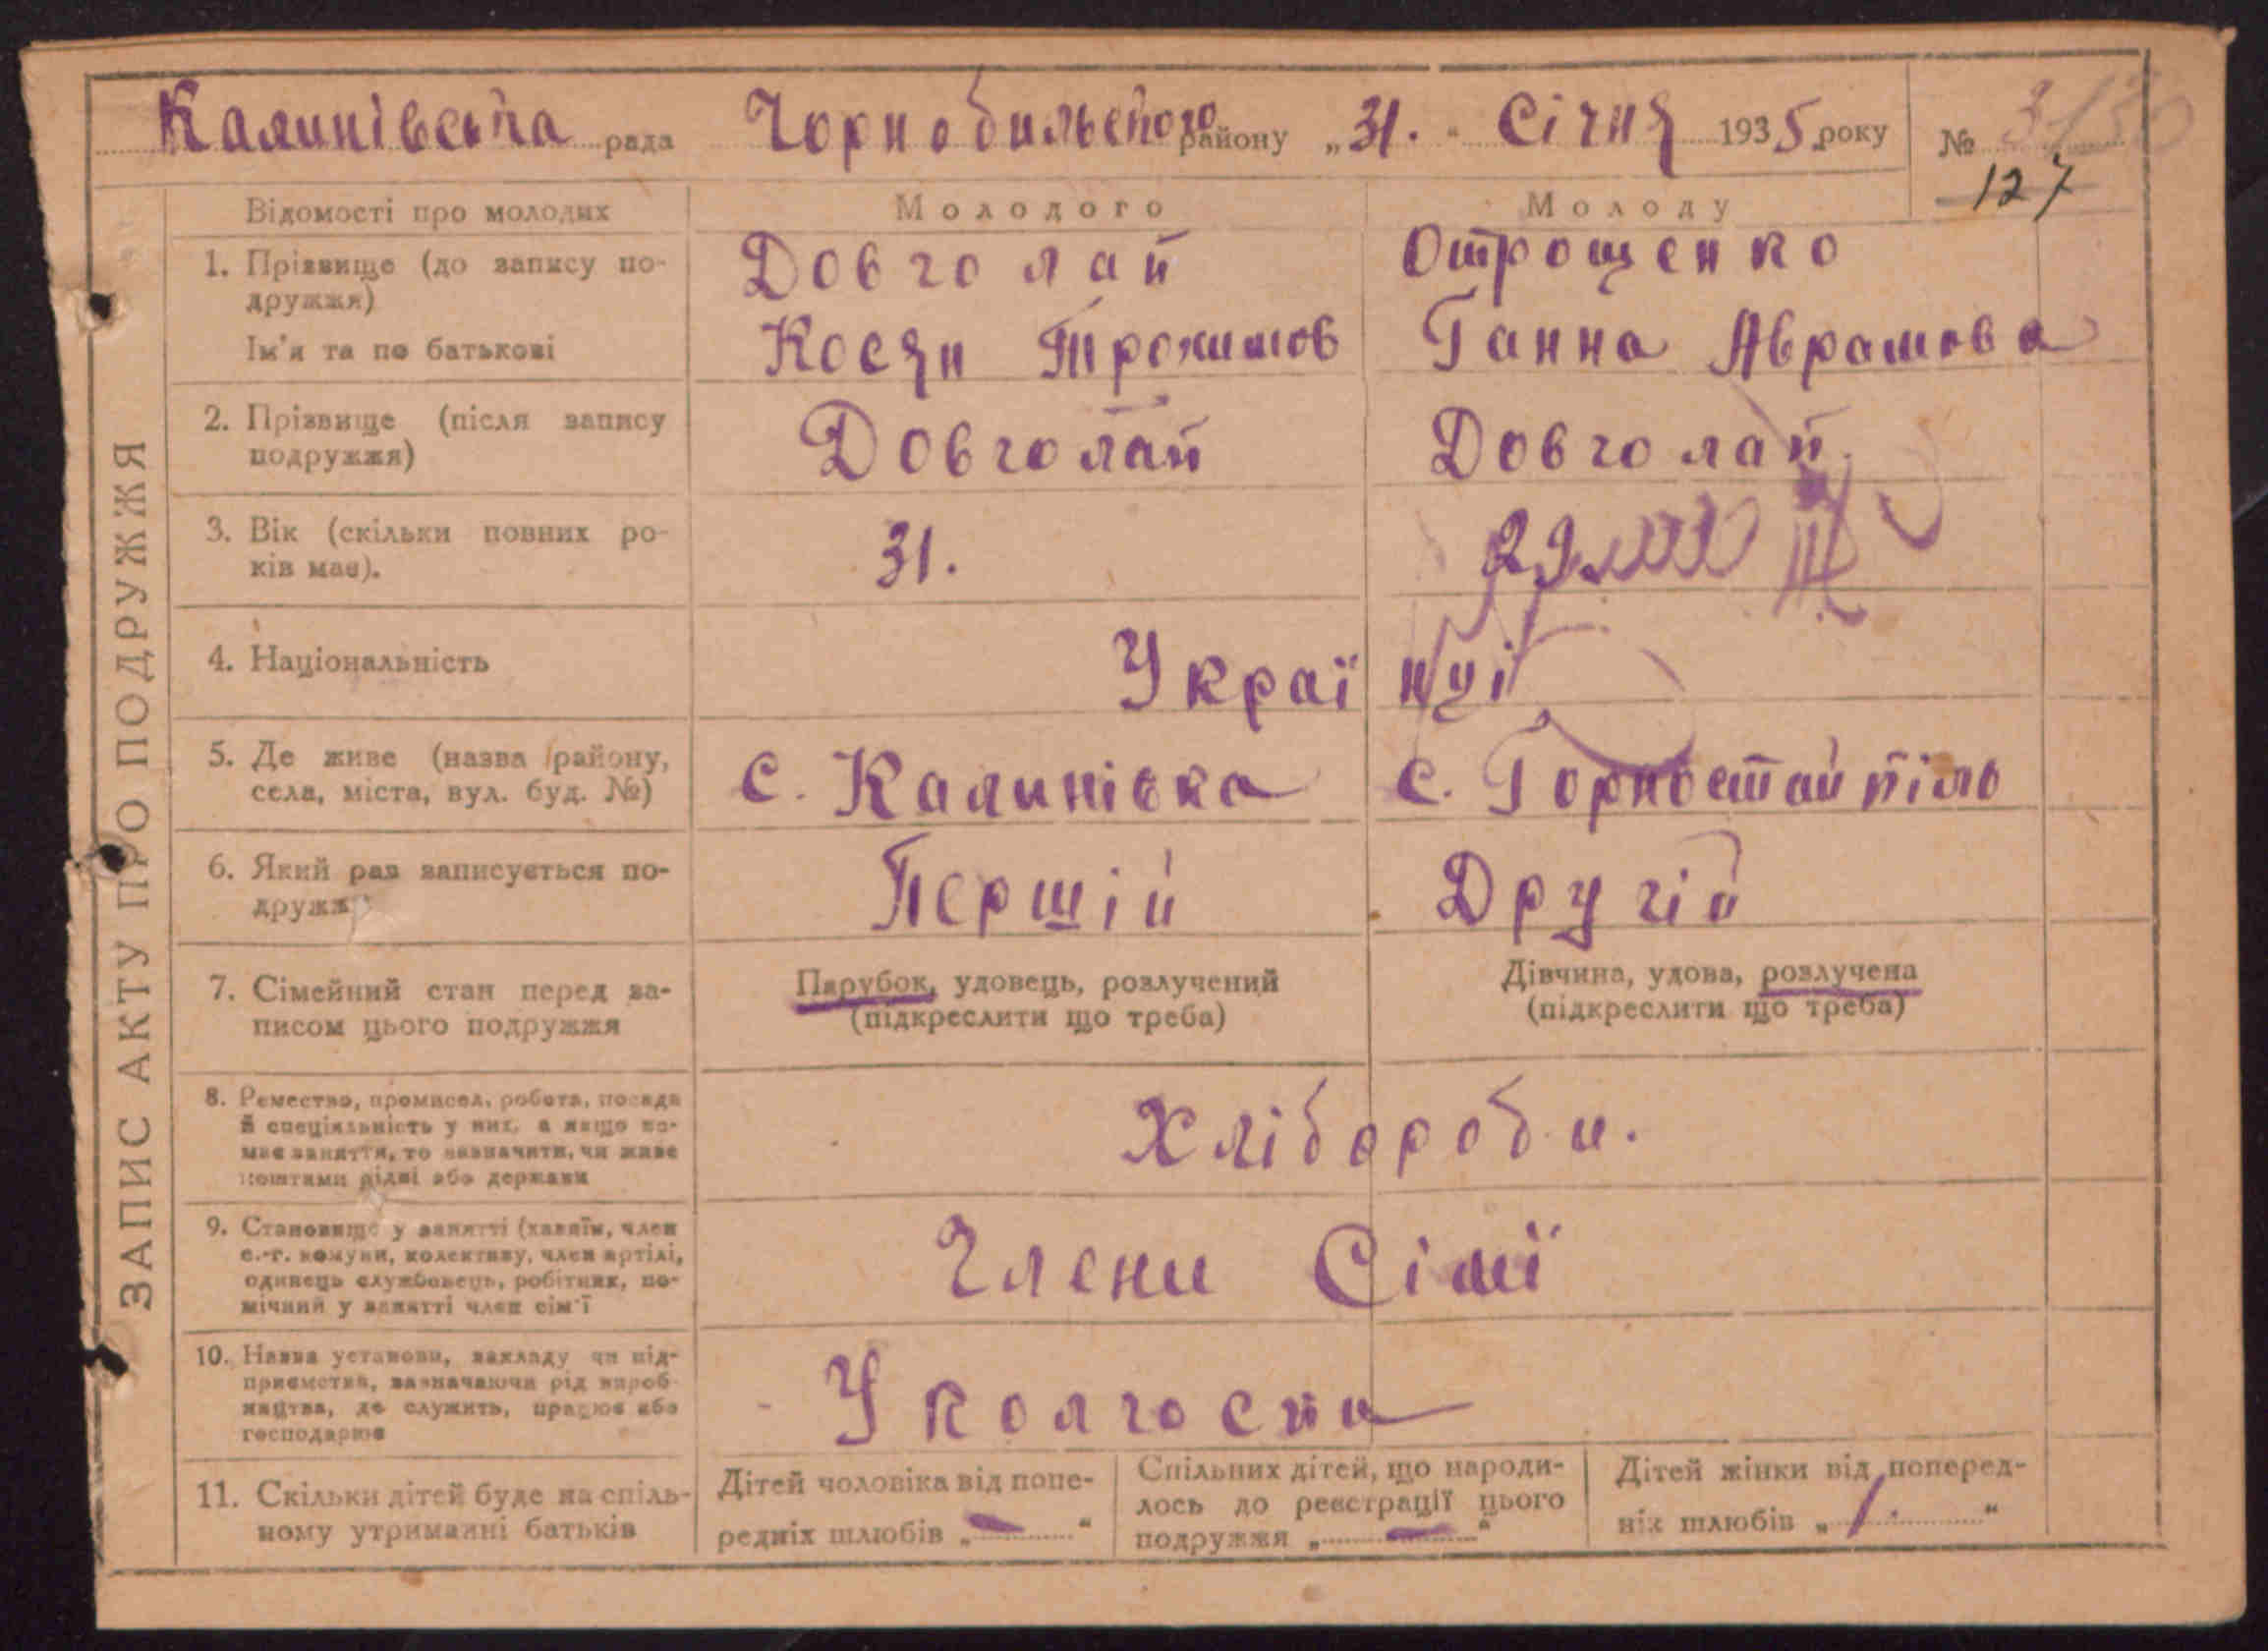 Калинівська рада Чорнобильського району „31.“ Січня 1935 року №
127
ЗАПИС АКТУ ПРО ПОДРУЖЖЯ
Відомості про молодих
Молодого
Молоду
1. Прізвище (до запису по-
дружжя)
Довголап
Отрощенко
Ім'я та по батькові
Косян Трохимов
Ганна Аврамова
2. Прізвище (після запису
подружжя)
Довголап
Довголап.
3. Вік (скільки повних ро-
ків має).
31.
29
4. Національність
Українці
5. Де живе (назва району,
села, міста, вул. буд. №)
с. Калинівка
с. Горностайпіль
6. Який раз записується по-
дружжя
Першій
Другій
7. Сімейний стан перед за-
писом цього подружжя
Парубок, удовець, розлучений
(підкреслити що треба)
Дівчина, удова, розлучена
(підкреслити що треба)
8. Ремество, промисел, робота, посада
й спеціяльність у них, а якщо не-
має заняття, то зазначити, чи живе
коштами рідні або держави
Хлібороби.
9. Становище у занятті (хазяїн, член
с.-г. комуни, колективу, член артілі,
одинець службовець, робітник, по-
мічний у занятті член сім'ї
Члени Сімї
10. Назва установи, закладу чи під-
приємства, зазначаючи рід вироб-
ництва, де служить, працює або
господарює
У колгоспи
11. Скільки дітей буде на спіль-
ному утриманні батьків
Дітей чоловіка від попе-
редніх шлюбів „—“
Спільних дітей, що народи-
лось до реєстрації цього
подружжя „—“
Дітей жінки від поперед-
ніх шлюбів „1.“